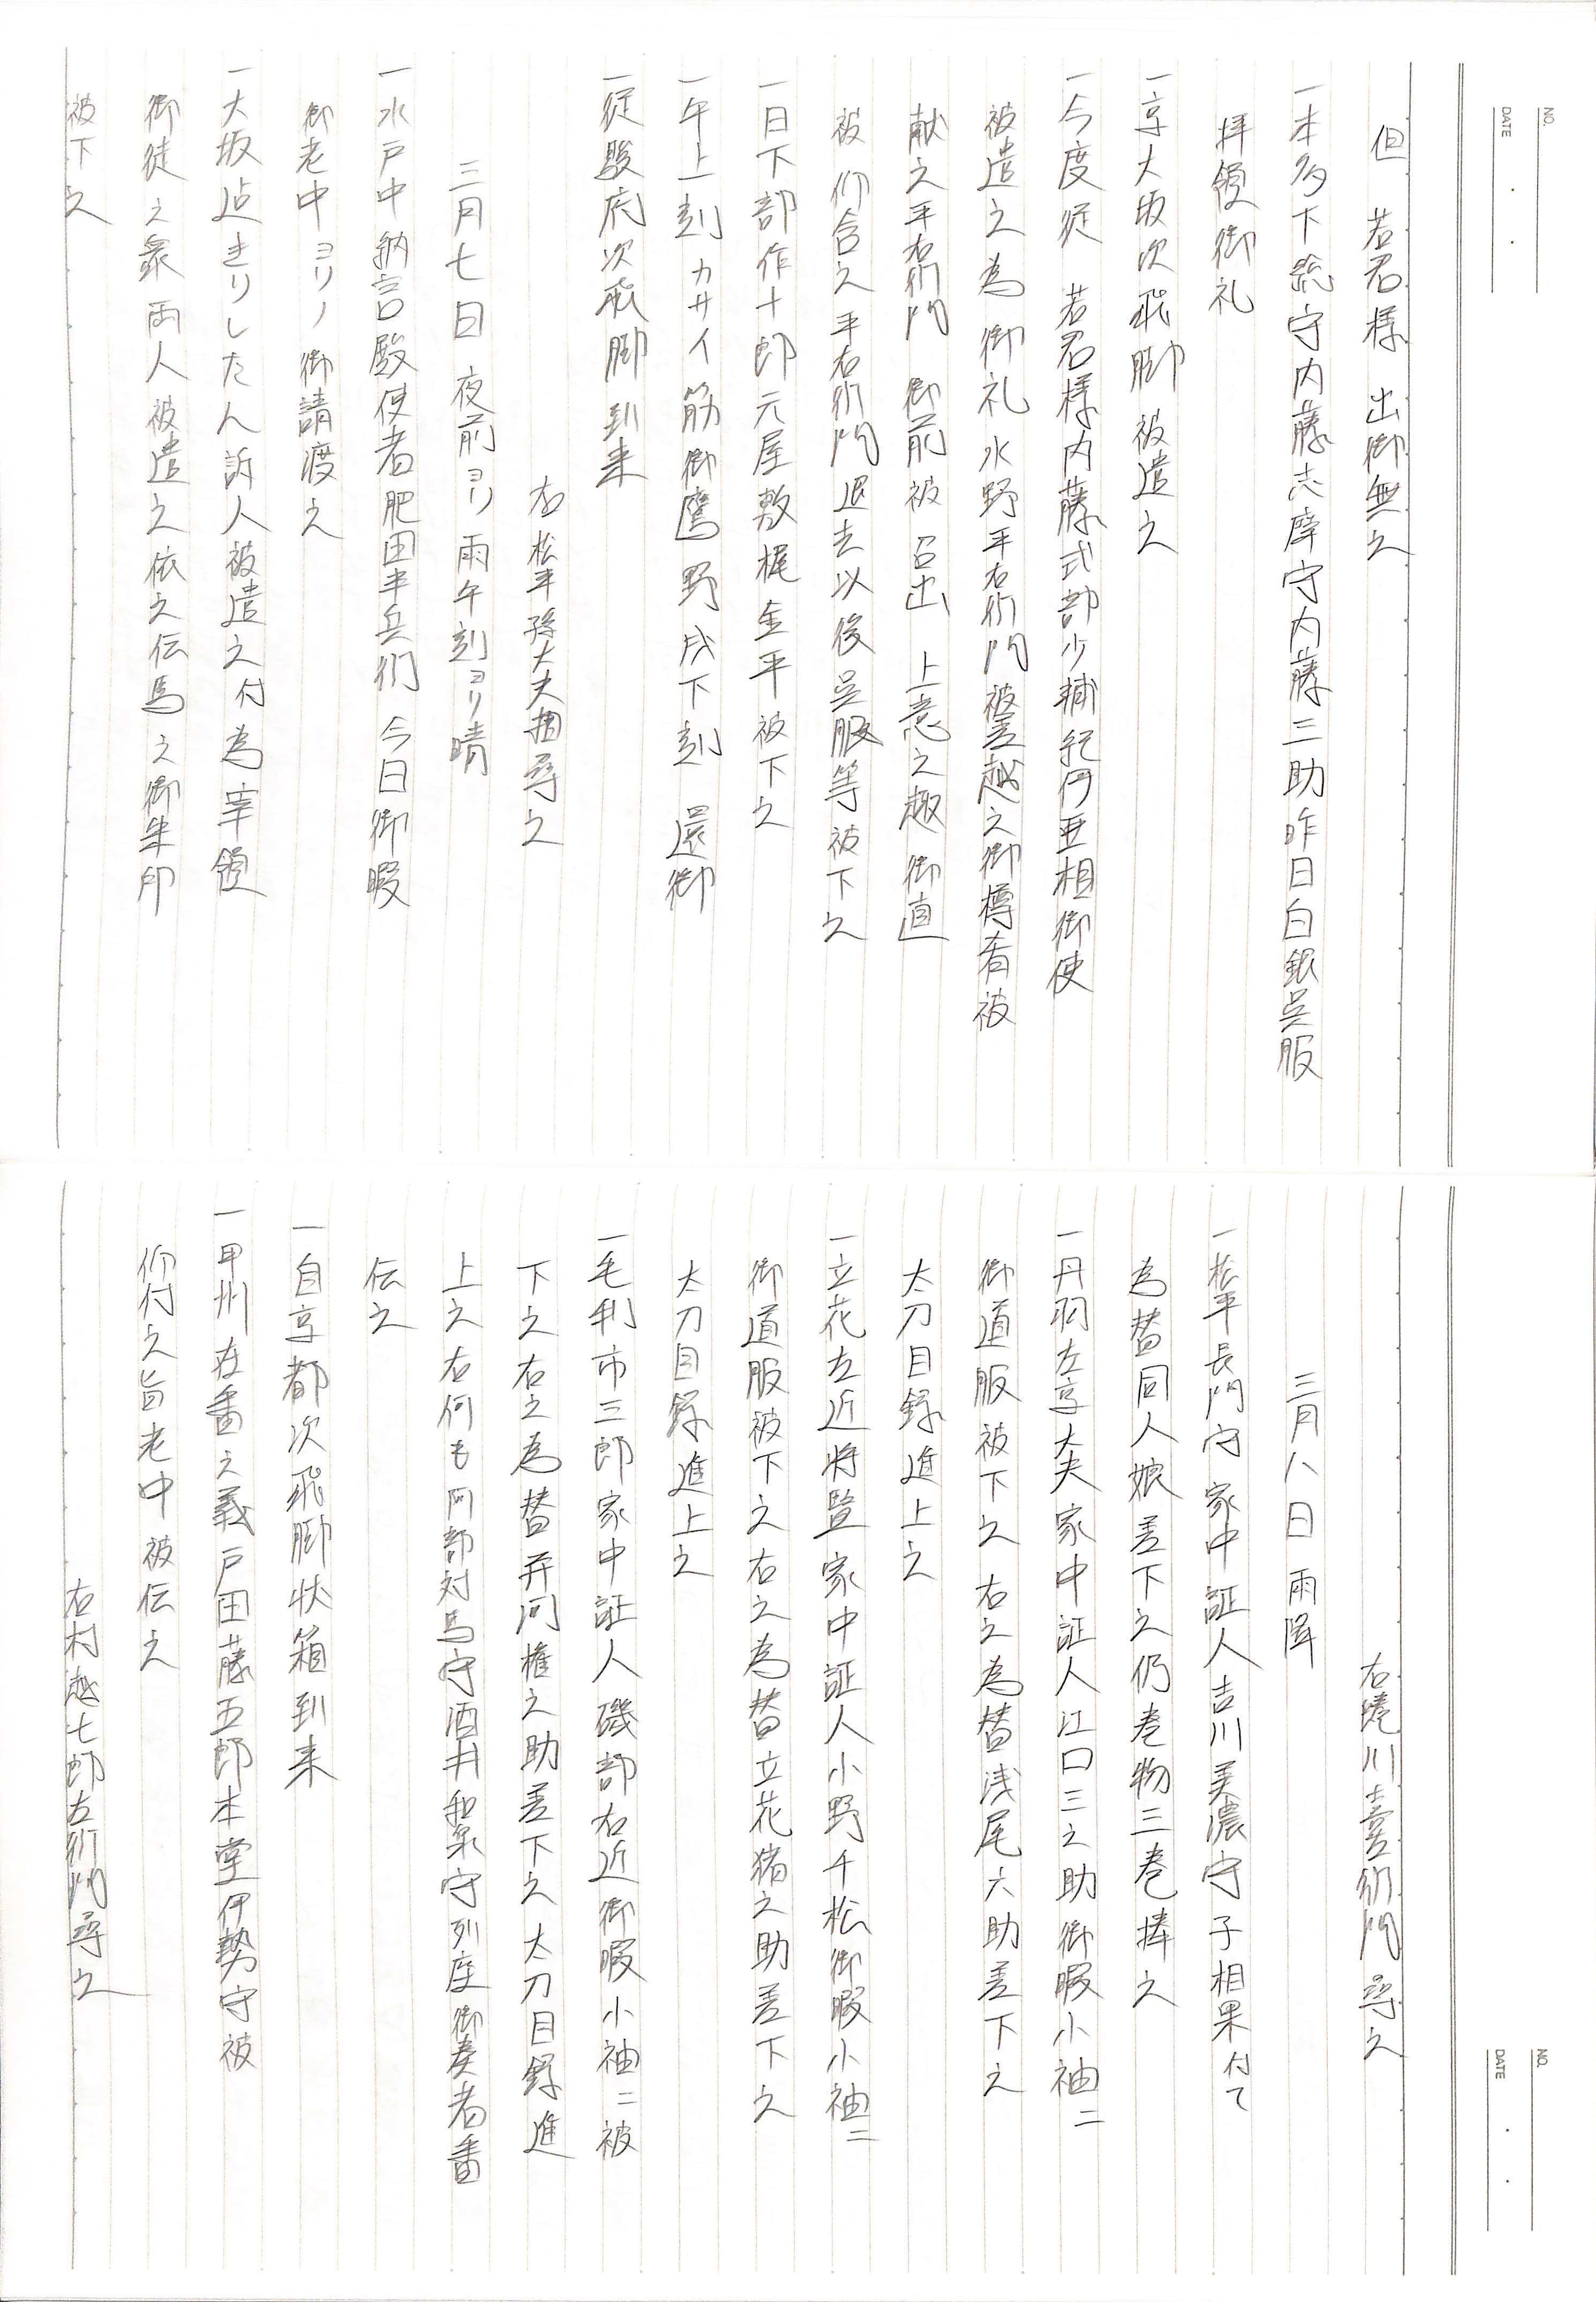 NO.
DATE
但　若君様　出御無之
一本多下総守内藤志摩守内藤三助昨日白銀呉服
拝領御礼
一京大坂次飛脚被遣之
一今度従　若君様内藤式部少輔紀伊亜相御使
被遣之為御礼水野平右衛門被差越之御樽肴被
献之平右衛門　御前被　召出　上意之趣　御直
被　仰含之平右衛門退去以後呉服等被下之
一日下部作十郎元屋敷梶金平被下之
一午上刻カサイ筋御鷹野戌下刻　還御
一従駿府次飛脚到来
右松平孫大夫番尋之
三月七日　夜前ヨリ雨午刻ヨリ晴
一水戸中納言殿使者肥田半兵衛　今日御暇
御老中ヨリノ御請渡之
一大坂迄きりしたん訴人被遣之付為宰領
御徒之衆両人被遣之依之伝馬之御朱印
被下之
NO.
DATE
右蜷川喜左衛門尋之
三月八日　雨降
一松平長門守家中証人吉川美濃守子相果付て
為替同人娘差下之仍巻物三巻捧之
一丹羽左京大夫家中証人江口三之助御暇小袖二
御道服被下之右之為替浅尾六助差下之
太刀目録進上之
一立花左近将監家中証人小野千松御暇小袖二
御道服被下之右之為替立花猪之助差下之
太刀目録進上之
一毛利市三郎家中証人磯部右近御暇小袖二被
下之右之為替井河権之助差下之太刀目録進
上之右何も阿部対馬守酒井和泉守列座御奏者番
伝之
一自京都次飛脚状箱到来
一甲州在番之義戸田藤五郎本堂伊勢守被
仰付之旨老中被伝之
右村越七郎左衛門尋之